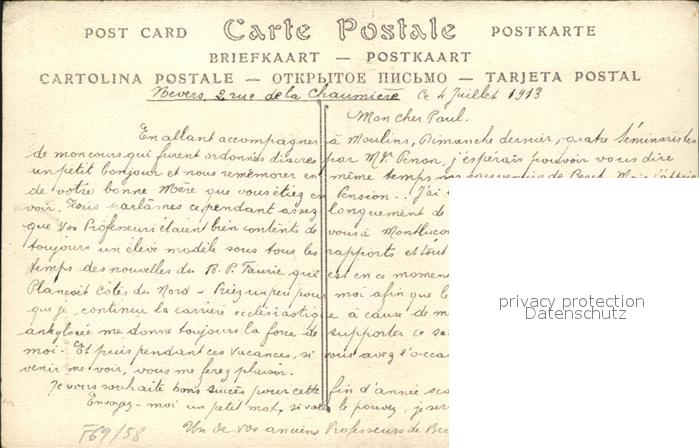 POST CARD Carte Postale POSTKARTE
BRIEFKAART — POSTKAART
CARTOLINA POSTALE — ОТКРЫТОЕ ПИСЬМО — TARJETA POSTAL
Nevers, 2 rue de la Chaumière Ce 4 Juillet 1913
Mon cher Paul.
En allant accompagner à Moulins, Dimanche dernier, quatre séminaristes
de mon cours qui furent ordonnés diacres par Mgr Penon, j'espérais pouvoir vous dire
un petit bonjour et nous remémorer en même temps nos souvenirs de
de votre bonne Mère que vous étiez en Pension... J'ai
voir. Nous parlâmes cependant assez longuement de
que vos Professeurs étaient bien contents de vous à Montluçon
toujours un élève modèle sous tous les rapports et tout
temps des nouvelles du R. P. Faurie qui est en ce moment
Plancoët Côtes du Nord — Priez un peu pour moi afin que le
que je continue la carrière ecclésiastique à cause de m
ankylosée me donne toujours la force de supporter ce
moi. Et puis pendant ces vacances, si vous avez l'occa
venir me voir, vous me ferez plaisir.
Je vous souhaite bons succès pour cette fin d'année sco
Envoyez-moi un petit mot, si vous le pouvez, je ser
Un de vos anciens Professeurs de
F69/58
privacy protection
Datenschutz